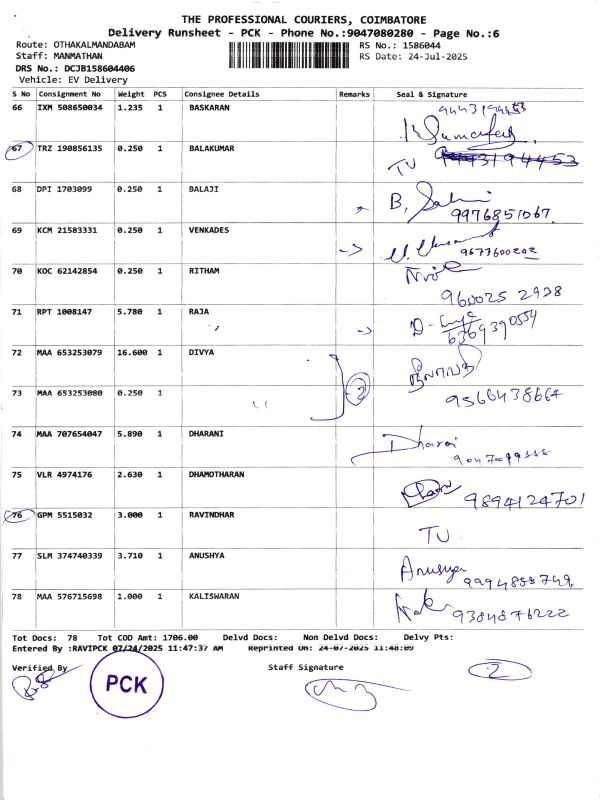 THE PROFESSIONAL COURIERS, COIMBATORE
Delivery Runsheet - PCK - Phone No.:9047080280 - Page No.:6
Route: OTHAKALMANDABAM RS No.: 1586044
Staff: MANMATHAN RS Date: 24-Jul-2025
DRS No.: DCJB158604406
Vehicle: EV Delivery
S No Consignment No Weight PCS Consignee Details Remarks Seal & Signature
66 IXM 508650034 1.235 1 BASKARAN
67 TRZ 190856135 0.250 1 BALAKUMAR TU
68 DPI 1703099 0.250 1 BALAJI B. 9976851067
69 KCM 21583331 0.250 1 VENKADES 9677600202
70 KOC 62142854 0.250 1 RITHAM 960025 2928
71 RPT 1008147 5.780 1 RAJA 6369390554
72 MAA 653253079 16.600 1 DIVYA
73 MAA 653253080 0.250 1 " 2 9566438664
74 MAA 707654047 5.890 1 DHARANI
75 VLR 4974176 2.630 1 DHAMOTHARAN 9894124701
76 GPM 5515032 3.000 1 RAVINDHAR TU
77 SLM 374740339 3.710 1 ANUSHYA Anushya
78 MAA 576715698 1.000 1 KALISWARAN 9384876222
Tot Docs: 78 Tot COD Amt: 1706.00 Delvd Docs: Non Delvd Docs: Delvy Pts:
Entered By :RAVIPCK 07/24/2025 11:47:37 AM Reprinted On: 24-07-2025 11:48:09
Verified By Staff Signature 2
PCK